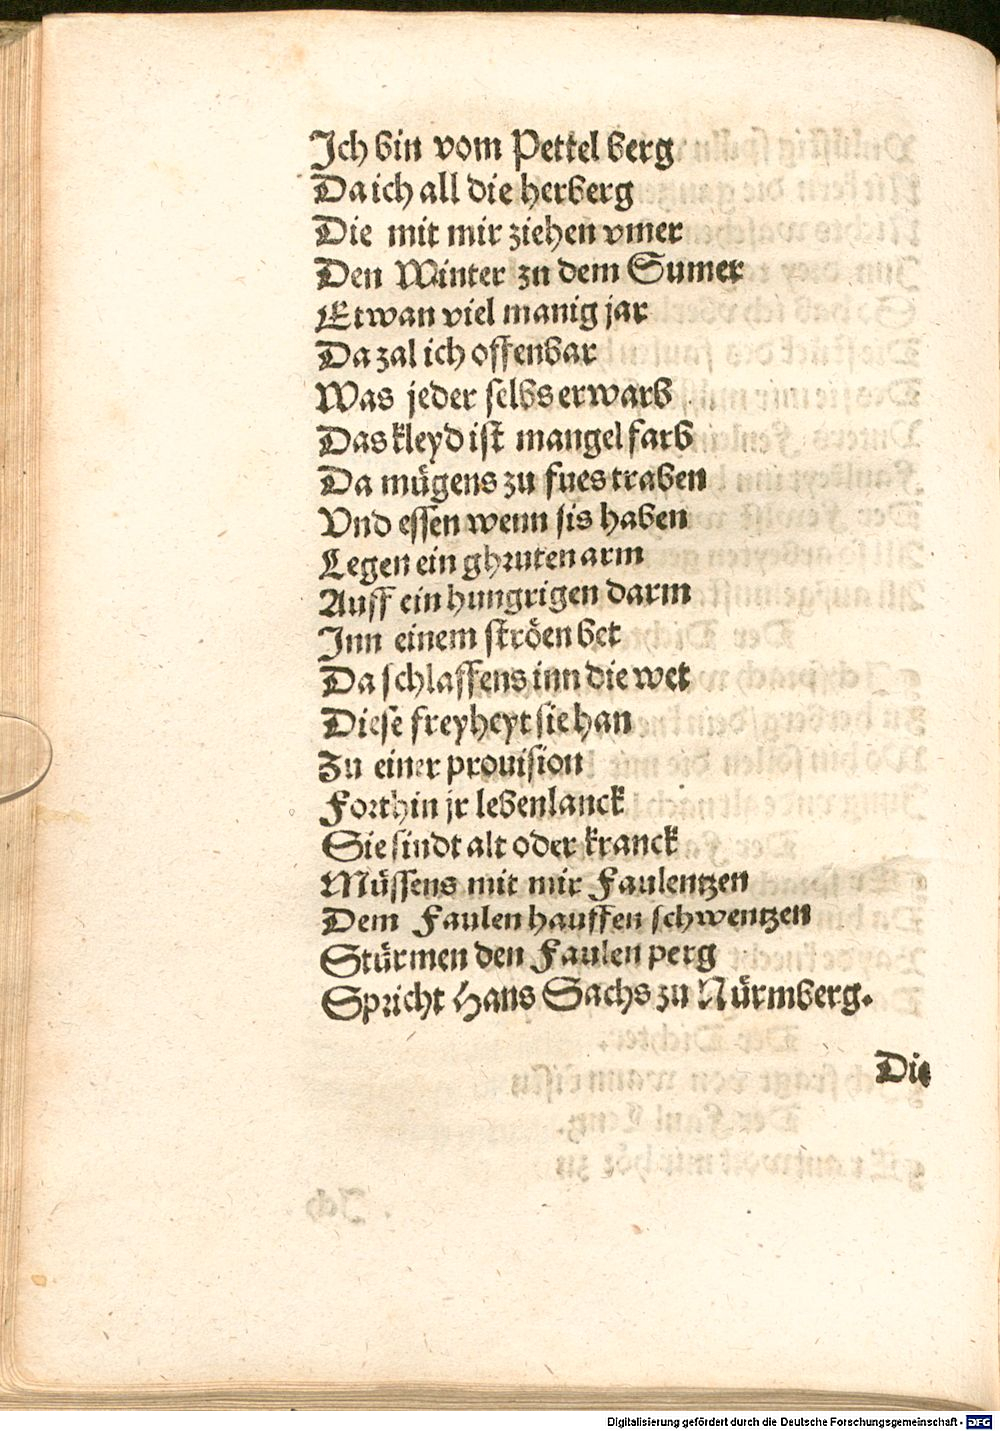 Ich bin vom Pettel berg
Da ich all die herberg
Die mit mir ziehen vmer
Den Winter zu dem Sumer
Etwan viel manig jar
Da zal ich offenbar
Was jeder selbs erwarb
Das kleyd ist mangel farb
Da mügens zu fues traben
Vnd essen wenn sis haben
Legen ein ghruten arm
Auff ein hungrigen darm
Inn einem ströen bet
Da schlaffens inn die wet
Diese freyheyt sie han
Zu einer prouision
Forthin jr lebenlanck
Sie sindt alt oder kranck
Müssens mit mir Faulentzen
Dem Faulen hauffen schwentzen
Stürmen den Faulen perg
Spricht Hans Sachs zu Nürmberg.
Die
Digitalisierung gefördert durch die Deutsche Forschungsgemeinschaft - DFG